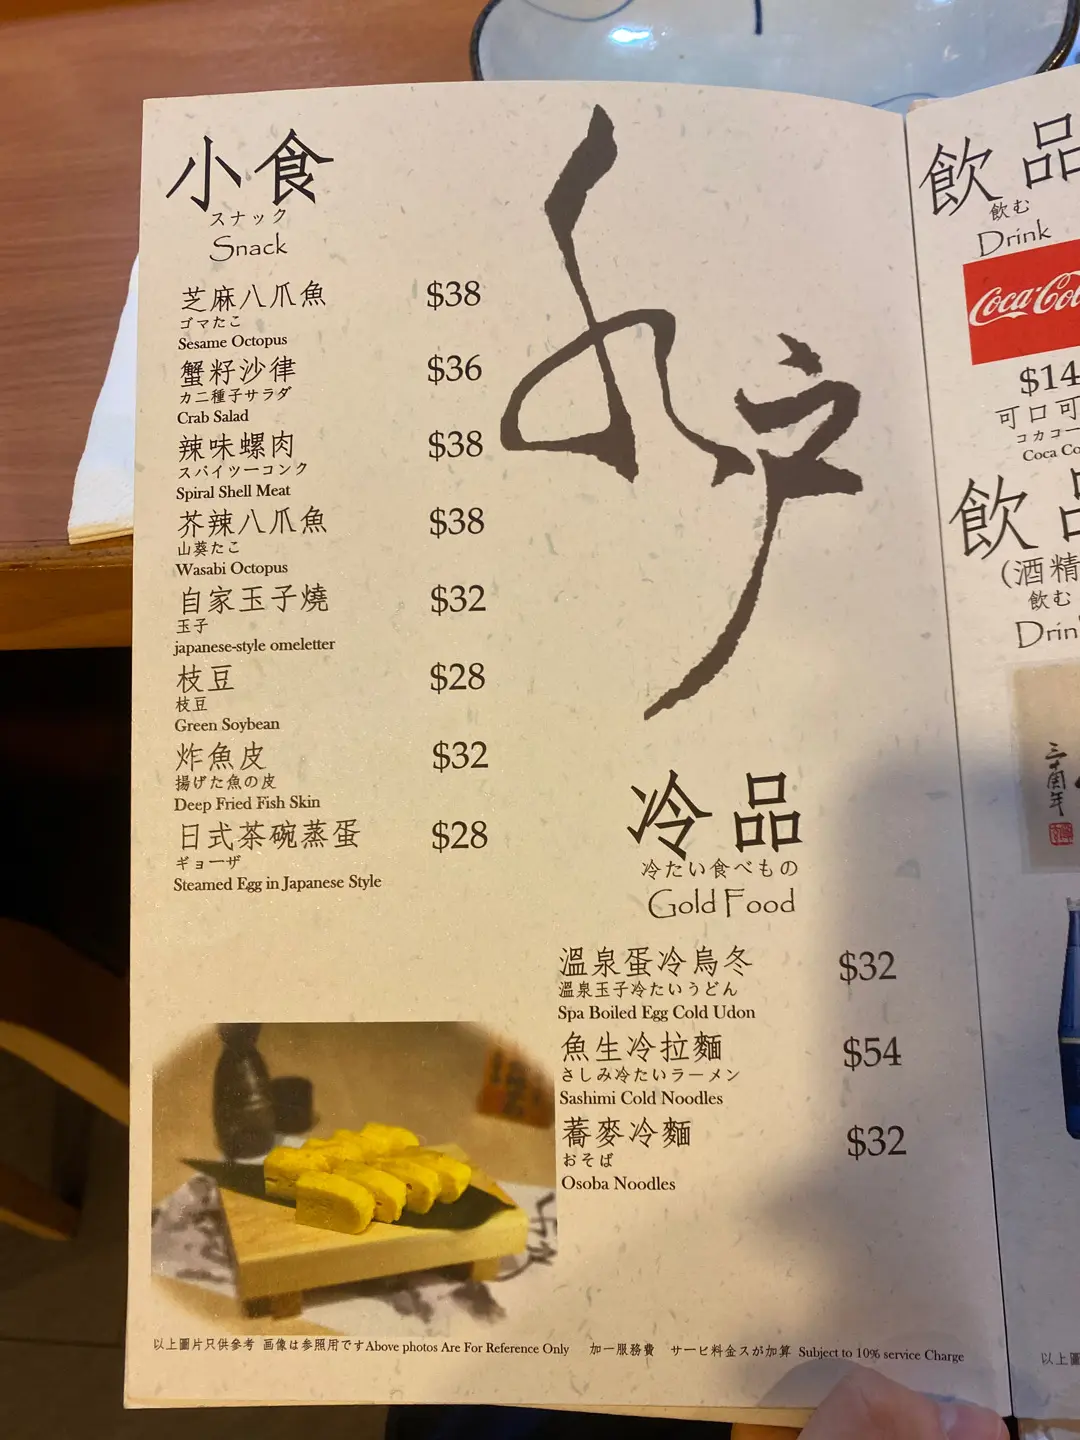 小食
スナック
Snack
芝麻八爪魚 $38
ゴマたこ
Sesame Octopus
蟹籽沙律 $36
カニ種子サラダ
Crab Salad
辣味螺肉 $38
スパイツーコンク
Spiral Shell Meat
芥辣八爪魚 $38
山葵たこ
Wasabi Octopus
自家玉子燒 $32
玉子
japanese-style omeletter
枝豆 $28
枝豆
Green Soybean
炸魚皮 $32
揚げた魚の皮
Deep Fried Fish Skin
日式茶碗蒸蛋 $28
ギョーザ
Steamed Egg in Japanese Style
冷品
冷たい食べもの
Gold Food
溫泉蛋冷烏冬 $32
溫泉玉子冷たいうどん
Spa Boiled Egg Cold Udon
魚生冷拉麵 $54
さしみ冷たいラーメン
Sashimi Cold Noodles
蕎麥冷麵 $32
おそば
Osoba Noodles
以上圖片只供參考 画像は参照用ですAbove photos Are For Reference Only 加一服務費 サービ料金スが加算 Subject to 10% service Charge
飲品
飲む
Drink
Coca-Col
$14
可口可
コカコー
Coca Co
飲品
(酒精
飲む
Drin
以上圖